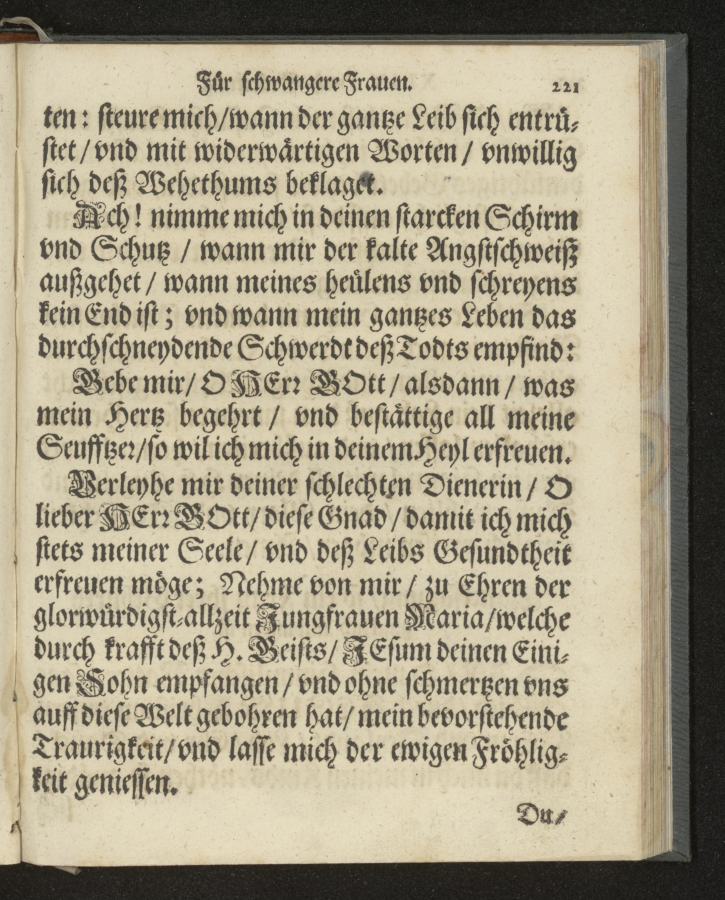 Für schwangere Frauen. 221
ten: steure mich/wann der gantze Leib sich entrü-
stet/ vnd mit widerwärtigen Worten/ vnwillig
sich deß Wehethums beklaget.
Ach! nimme mich in deinen starcken Schirm
vnd Schutz / wann mir der kalte Angstschweiß
außgehet/ wann meines heülens vnd schreyens
kein End ist; vnd wann mein gantzes Leben das
durchschneydende Schwerdt deß Todts empfind:
Gebe mir/ O HErr GOtt/ alsdann/ was
mein Hertz begehrt / vnd bestättige all meine
Seufftzer/so wil ich mich in deinem Heyl erfreuen.
Verleyhe mir deiner schlechten Dienerin/ O
lieber HErr GOtt/ diese Gnad/ damit ich mich
stets meiner Seele/ vnd deß Leibs Gesundtheit
erfreuen möge; Nehme von mir/ zu Ehren der
glorwürdigst-allzeit Jungfrauen Maria/welche
durch krafft deß H. Geists/ JEsum deinen Eini-
gen Sohn empfangen/ vnd ohne schmertzen vns
auff diese Welt gebohren hat/ mein bevorstehende
Traurigkeit/ vnd lasse mich der ewigen Fröhlig-
keit geniessen.
Du/